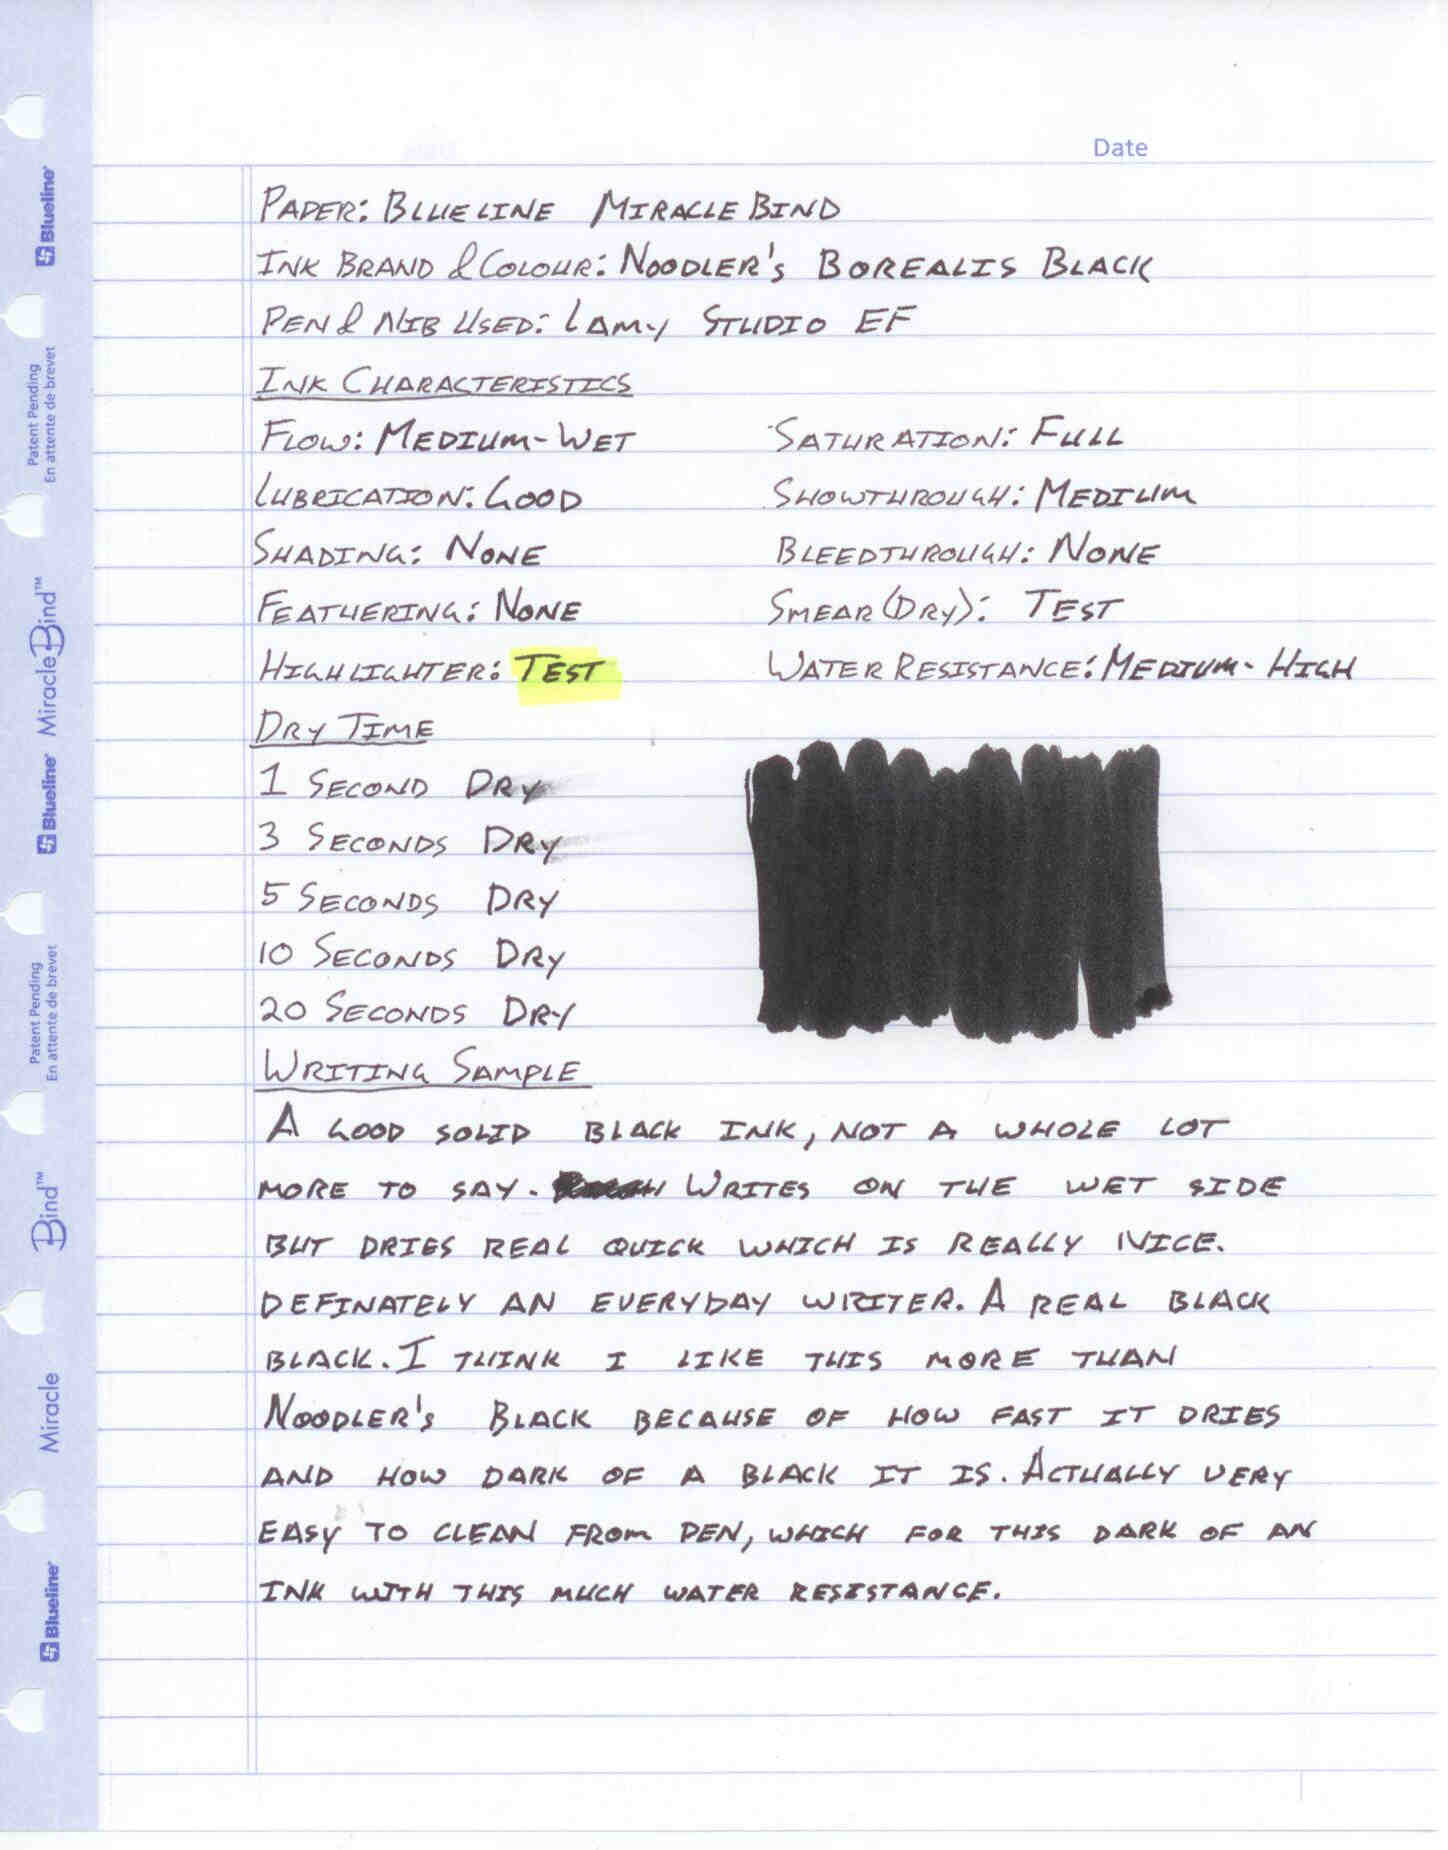 Date
Paper: Blueline MiracleBind
Ink Brand & Colour: Noodler's Borealis Black
Pen & Nib Used: Lamy Studio EF
Ink Characteristics
Flow: Medium-Wet
Saturation: Full
Lubrication: Good
Showthrough: Medium
Shading: None
Bleedthrough: None
Feathering: None
Smear (Dry): Test
Highlighter: Test
Water Resistance: Medium-High
Dry Time
1 Second Dry
3 Seconds Dry
5 Seconds Dry
10 Seconds Dry
20 Seconds Dry
Writing Sample
A GOOD SOLID BLACK INK, NOT A WHOLE LOT
MORE TO SAY. WRITES ON THE WET SIDE
BUT DRIES REAL QUICK WHICH IS REALLY NICE.
DEFINATELY AN EVERYDAY WRITER. A REAL BLACK
BLACK. I THINK I LIKE THIS MORE THAN
NOODLER'S BLACK BECAUSE OF HOW FAST IT DRIES
AND HOW DARK OF A BLACK IT IS. ACTUALLY VERY
EASY TO CLEAN FROM PEN, WHICH FOR THIS DARK OF AN
INK WITH THIS MUCH WATER RESISTANCE.
Blueline
Patent Pending
En attente de brevet
MiracleBind™
Blueline
Patent Pending
En attente de brevet
Bind™
Miracle
Blueline